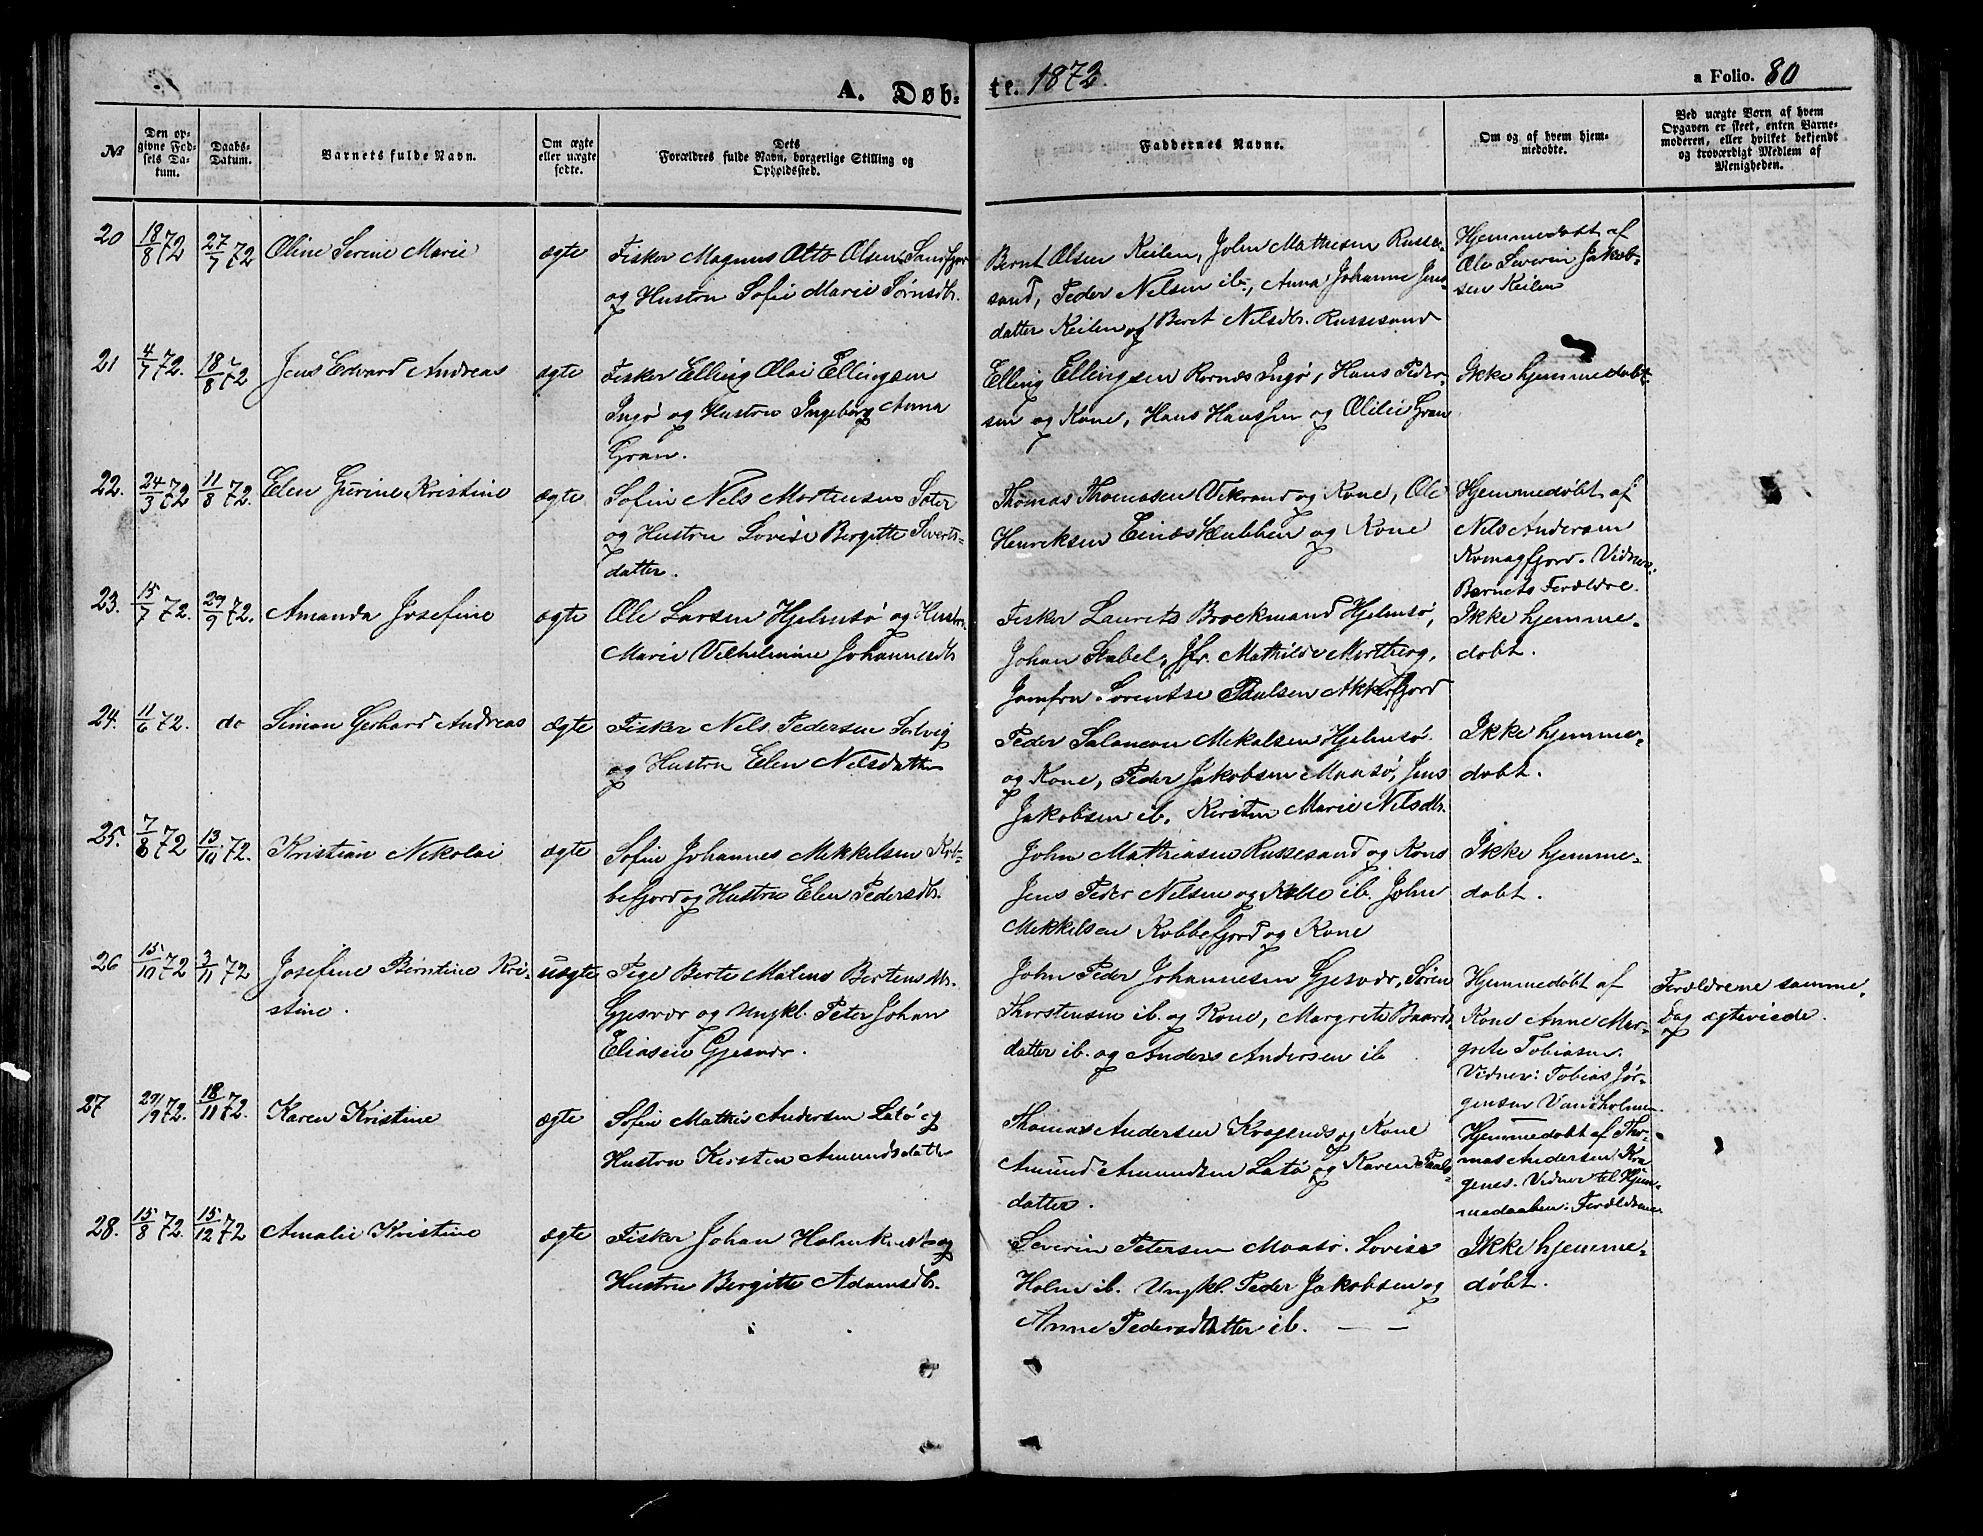 A. Døb-
te. 1872.
a Folio. 80
No
Den op-
givne Fød-
sels Da-
tum.
Daabs-
Datum.
Barnets fulde Navn.
Om ægte
eller uægte
fødte.
Dets
Forældres fulde Navn, borgerlige Stilling og
Opholdssted.
Faddernes Navne.
Om og af hvem hjem-
medøbte.
Ved uægte Børn af hvem
Opgaven er skeet, enten Barne-
moderen, eller hvilket bekjendt
og troværdigt Medlem af
Menigheden.
20 18/8 72 27/7 72 Oline Serine Marie ægte
Fisker Magnus Otto Olsen Sandfjor
og Hustru Sofie Marie Sørnsdtr.
Bernt Olsen Keilen, John Mathisen Russe-
sand, Peder Nelsen ib., Anna Johanne Jens-
datter Keilen og Beret Nelsdtr. Russesand
Hjemmedøbt af
Ole Severin Jakob-
sen Keilen
21 4/7 72. 18/8 72 Jens Edvard Andreas ægte
Fisker Elling Olai Ellingsen
Ingø og Hustru Ingeborg Anna
Gran.
Elling Ellingsen Ingø, Hans Peder-
sen og Kone, Hans Hansen og Olilie Gran
Ikke hjemmedøbt
22. 24/3 72 11/8 72. Elen Gurine Kristine ægte
Sofin Nels Mortensen
og Hustru Lovise Bergitte Siverts-
datter.
Thomas Thomasen Vikrand og Kone, Ole
Henriksen og Kone
Hjemmedøbt af
Nels Andersen
Komagfjord. Vidner:
Barnets Forældre.
23. 15/7 72. 29/9 72. Amanda Josefine ægte
Ole Larsen Hjelmsø og Hustru
Marie Vilhelmine Johannesdtr
Fisker Laurits Brockmand Hjelmsø,
Johan Stabel, Jfr. Mathilde Mortberg,
Jomfru Sorentse Paulsen Akkerfjord
Ikke hjemme-
døbt.
24. 11/6 72. do Simon Gerhard Andreas ægte
Fisker Nels Pedersen Selvig
og Hustru Elen Nelsdatter
Peder Salamon Mekalsen Hjelmsø
og Kone, Peder Jakobsen Maasø, Jens
Jakobsen ib, Kirsten Marie Nelsdtr.
Ikke hjemme-
døbt.
25. 7/8 72 13/10 72. Kristian Nikolai ægte
Sofin Johannes Mikkelsen Kob-
befjord og Hustru Elen Pedersdtr.
John Mathiasen Russesand og Kone
Jens Peder Nelsen og Kone ib. John
Mekkelsen Kobbefjord og Kone
Ikke hjemme-
døbt.
26 15/10 72 3/11 72 Josefine Berntine Kri-
stine.
uægte
Pige Berte Malene Bertensdtr.
Gjesvær og Ungkl. Peter Johan
Eliasen Gjesvær.
John Peder Johannesen Gjesvær, Søren
Thorstensen ib. og Kone, Margrete Baards
datter ib. og Anders Andersen ib
Hjemmedøbt af
Kone Anne Mar-
grete Tobiasen.
Vidner: Tobias Jør-
gensen Vandholmen.
Forældrene samme
Dag ægteviede.
27 29/9 72. 18/11 72. Karen Kristine ægte
Sofin Mathis Andersen Latø og
Hustru Kirsten Amundsdatter
Thomas Andersen Kragenæs og Kone
Amund Amundsen Latø og Karen Pauls-
datter.
Hjemmedøbt af Tho-
mas Andersen Kra
genes. Vidner til Hjem-
medaaben: Forældrene
28. 15/8 72. 15/12 72 Amalie Kristine ægte
Fisker Johan Holm og
Hustru Bergitte Adamsdtr.
Severin Petersen Maasø. Lovise
Holm ib. Ungkl. Peder Jakobsen og
Anne Pedersdatter ib. — —
Ikke hjemme-
døbt.